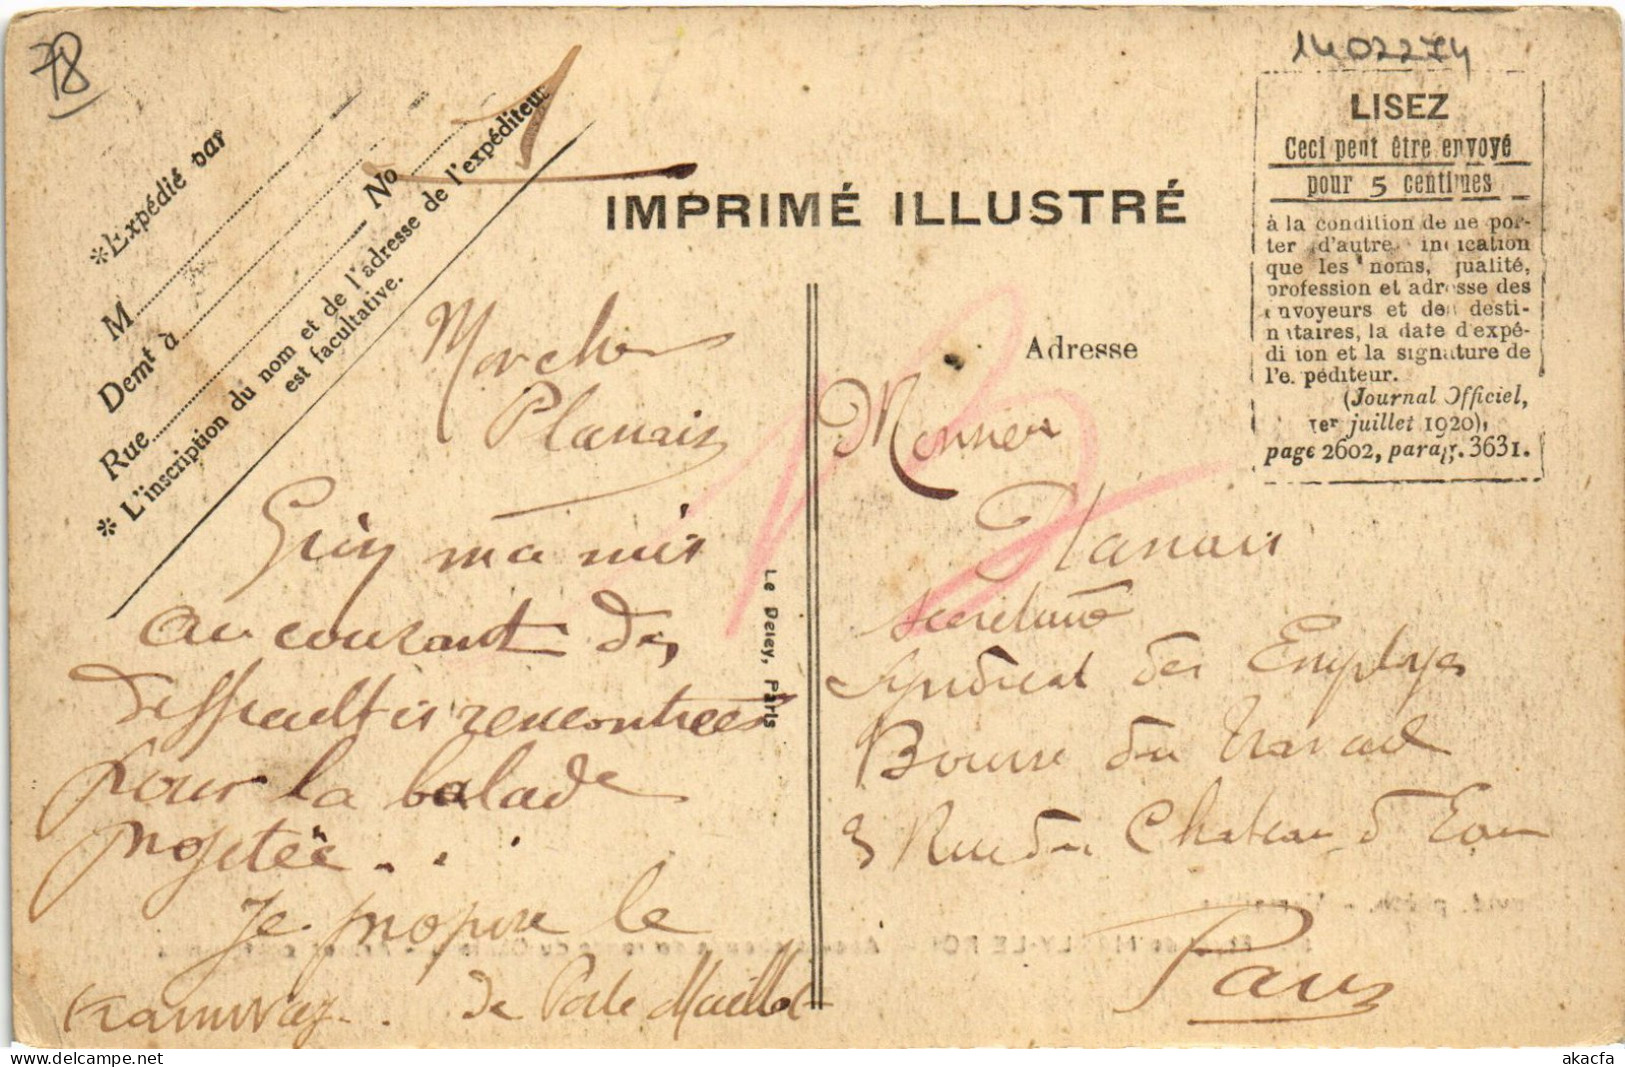 78
1402274
*Expédié par
M
Demt à
Rue No
* L'inscription du nom et de l'adresse de l'expéditeur
est facultative.
IMPRIMÉ ILLUSTRÉ
LISEZ
Ceci peut être envoyé
pour 5 centimes
à la condition de ne por-
ter d'autre indication
que les noms, qualité,
profession et adresse des
envoyeurs et des desti-
nataires, la date d'expé-
dition et la signature de
l'expéditeur.
(Journal Officiel,
1er juillet 1920),
page 2602, parag. 3631.
Adresse
Mon cher
Planais
ma mis
au courant des
difficultés rencontrées
pour la balade
projetée...
Je propose le
tramway. de Porte Maillot
Le Deley, Paris
Monsieur
Planais
Secrétaire
Syndicat des Employés
Bourse du Travail
3 Rue du Chateau d'Eau
Paris
akacfa